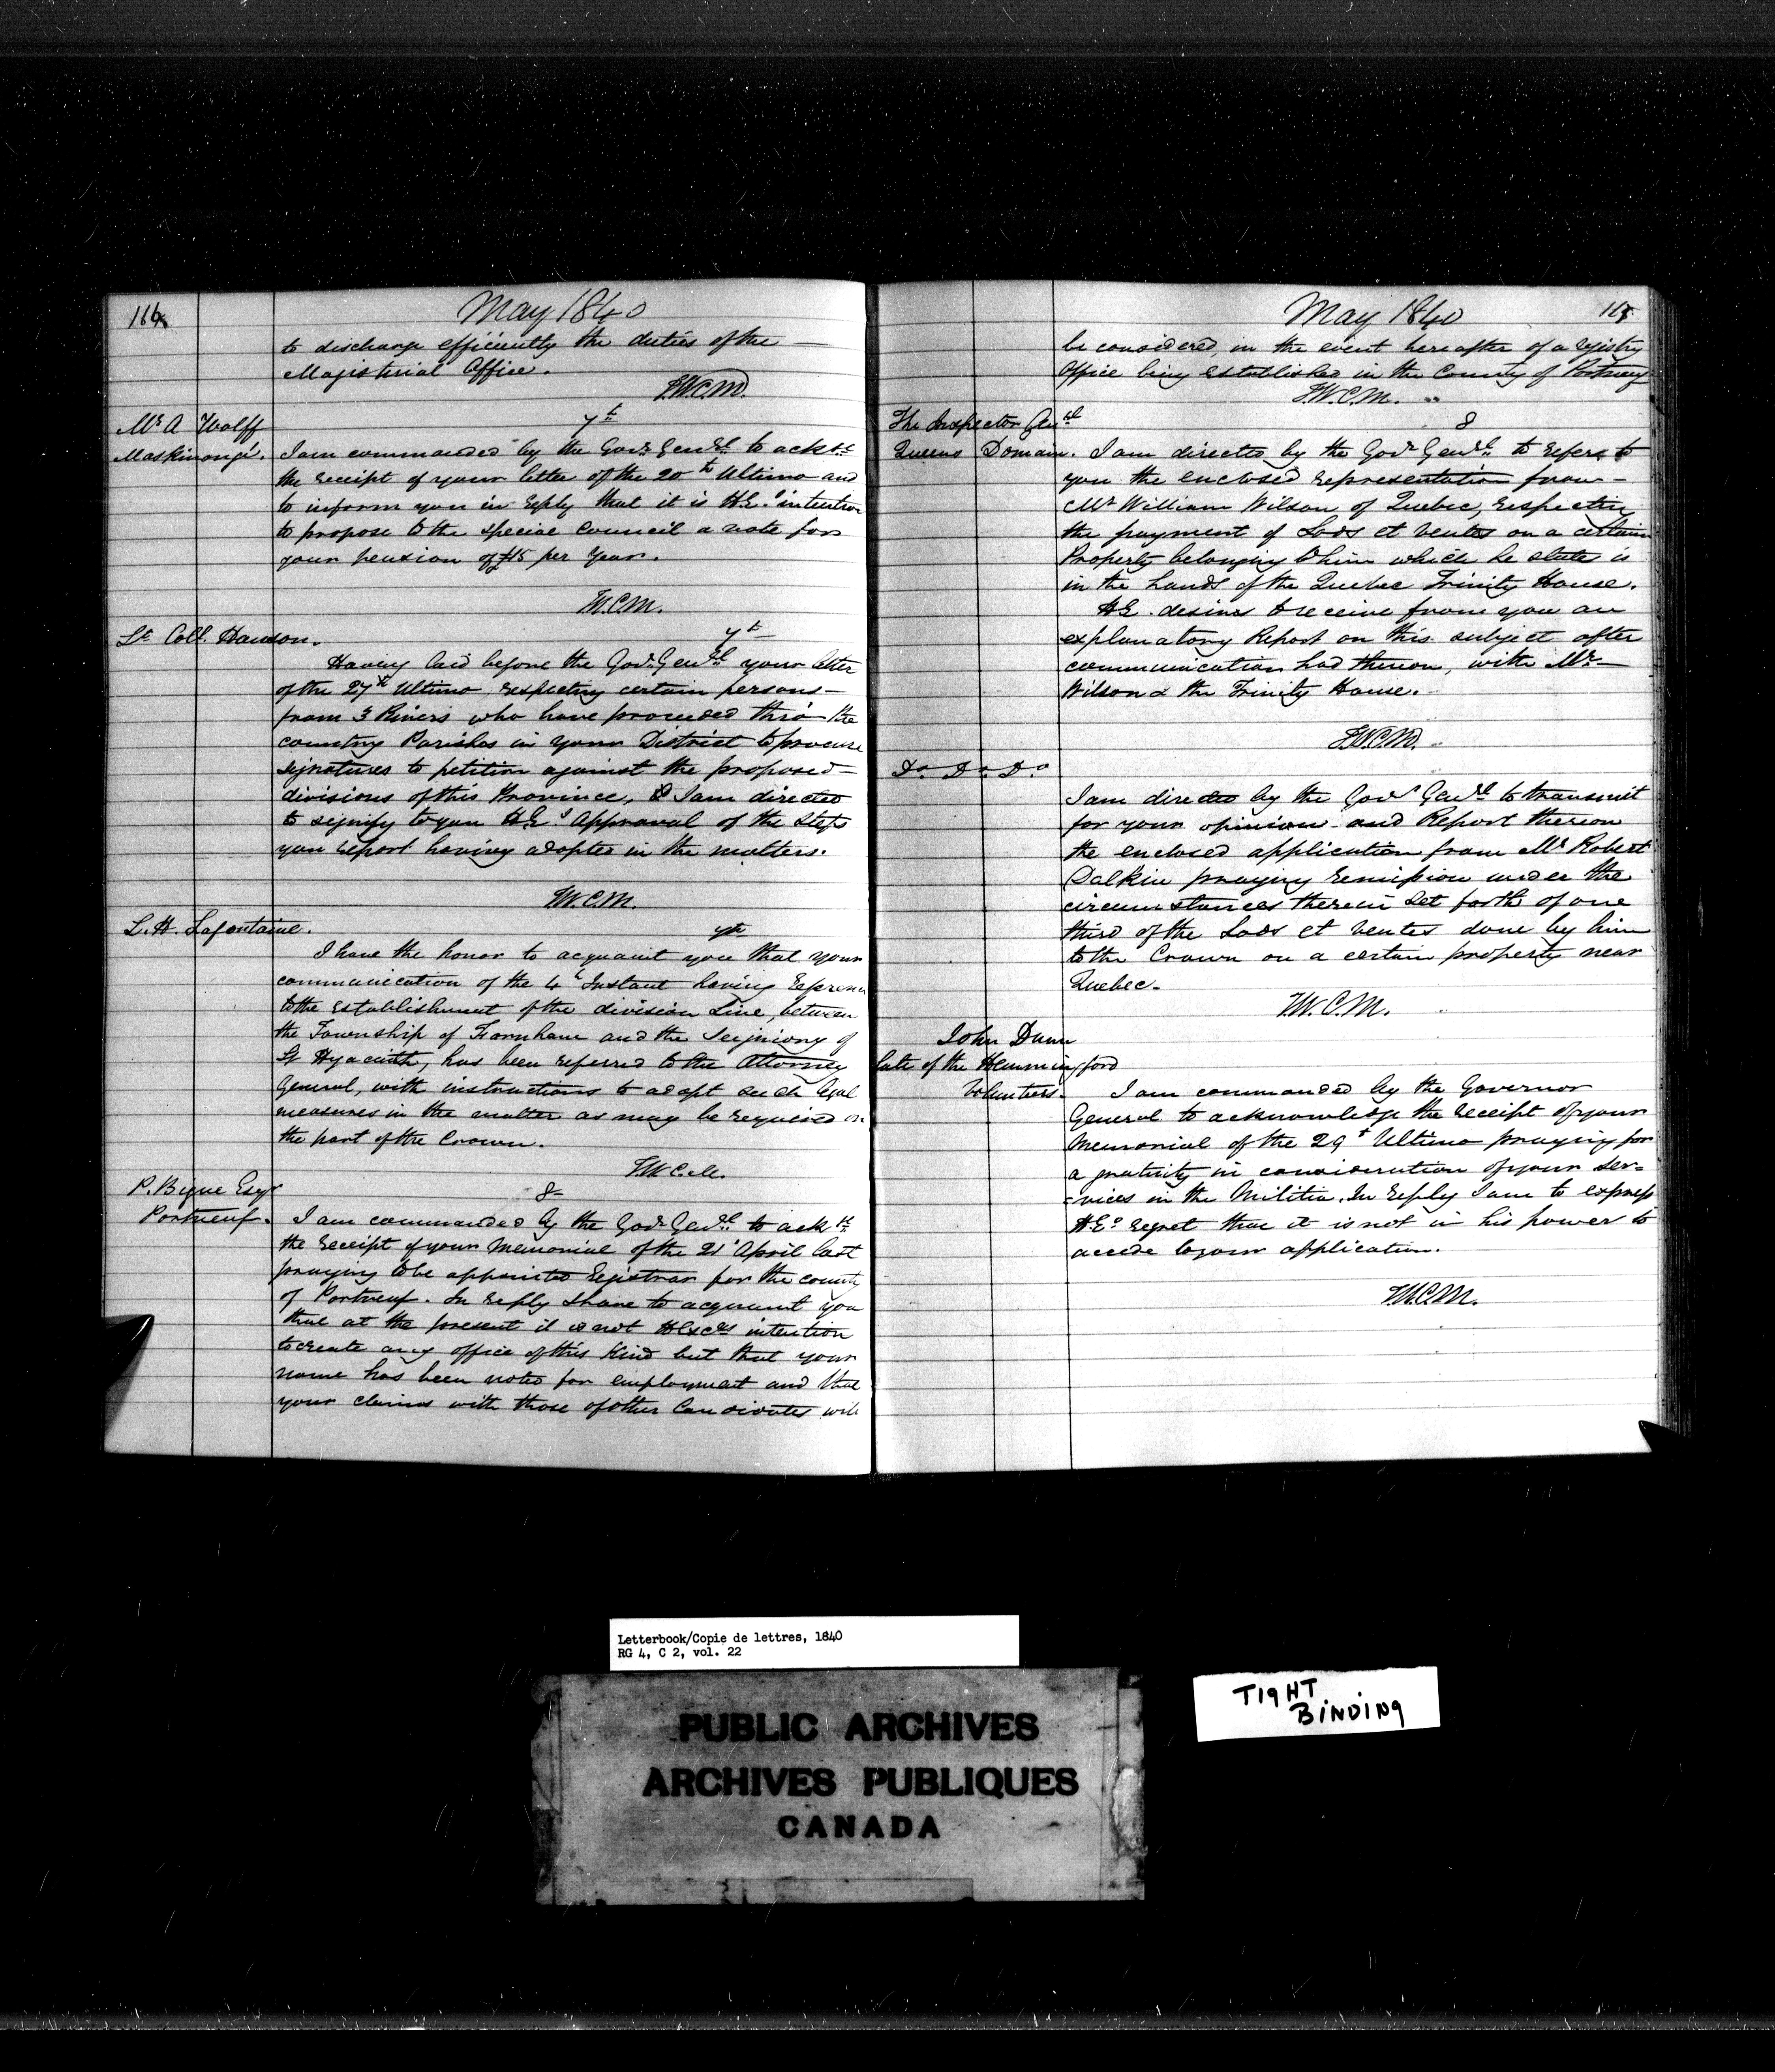 May 1840
to discharge efficiently the duties of the
Magisterial Office.
T.W.C.M.
Mr A Wolff
7t
Maskinongé.
I am commanded by the Govr Genrl to ackge
the receipt of your letter of the 20th Ultimo and
to inform you in reply that it is H.E.s intention
to propose to the special Council a vote for
your pension of £15 per Year.
T.W.C.M.
Lt Coll.
7t
Having laid before the Govr Genrl your letter
of the 27th Ultimo respecting certain persons
from 3 Rivers who have proceeded thro' the
country Parishes in your District to procure
signatures to petition against the proposed
divisions of this Province, & I am directed
to signify to you H.E.s Approval of the steps
you report having adopted in the matters.
T.W.C.M.
L. H. Lafontaine.
7th
I have the honor to acquaint you that your
communication of the 4t Instant having
to the establishment of the division Line, between
the Township of Farnham and the Seigniory of
St Hyacinth, has been referred to the Attorney
General, with instructions to adopt such legal
measures in the matter as may be required on
the part of the Crown.
T.W.C.M.
P. Esqr
8
Portneuf.
I am commanded by the Govr Genrl to ackge
the receipt of your Memorial of the 21t April last
praying to be appointed Registrar for the county
of Portneuf. In reply I have to acquaint you
that at the present it is not H Excys intention
to create any office of this Kind but that your
name has been noted for employment and that
your claims with those of other Candidates will
May 1840
be considered, in the event hereafter of a registry
Office being established in the County of Portneuf
T.W.C.M.
The Inspector Genl
8
Queens Domain.
I am directed by the Govr Genrl to refer to
you the enclosed representation from
Mr William Wilson of Quebec, respecting
the payment of Lods et ventes on a certain
Property belonging to him which he states is
in the hands of the Quebec Trinity House.
H.E. desires to receive from you an
explanatory Report on this subject after
communication had thereon, with Mr
Wilson & the Trinity House.
T.W.C.M.
Do Do Do
I am directed by the Govr Genrl to transmit
for your opinion and Report thereon
the enclosed application from Mr Robert
Dalkin praying remission under the
circumstances therein set forth of one
third of the Lods et ventes done by him
to the Crown on a certain property near
Quebec.
T.W.C.M.
John Dunn
late of the Hemmingford
Volunteers.
I am commanded by the Governor
General to acknowledge the receipt of your
Memorial of the 29t Ultimo praying for
a gratuity in consideration of your ser=
=vices in the Militia. In reply I am to express
H.Es regret that it is not in his power to
accede to your application.
T.W.C.M.
Letterbook/Copie de lettres, 1840
RG 4, C 2, vol. 22
PUBLIC ARCHIVES
ARCHIVES PUBLIQUES
CANADA
TIGHT
BINDING